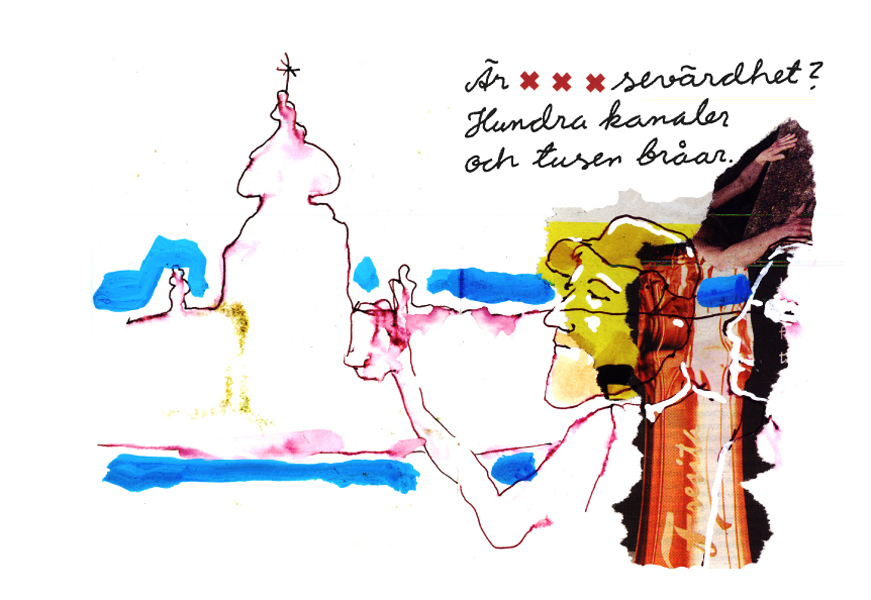 Är ✖ ✖ ✖ sevärdhet?
Hundra kanaler
och tusen bråar.